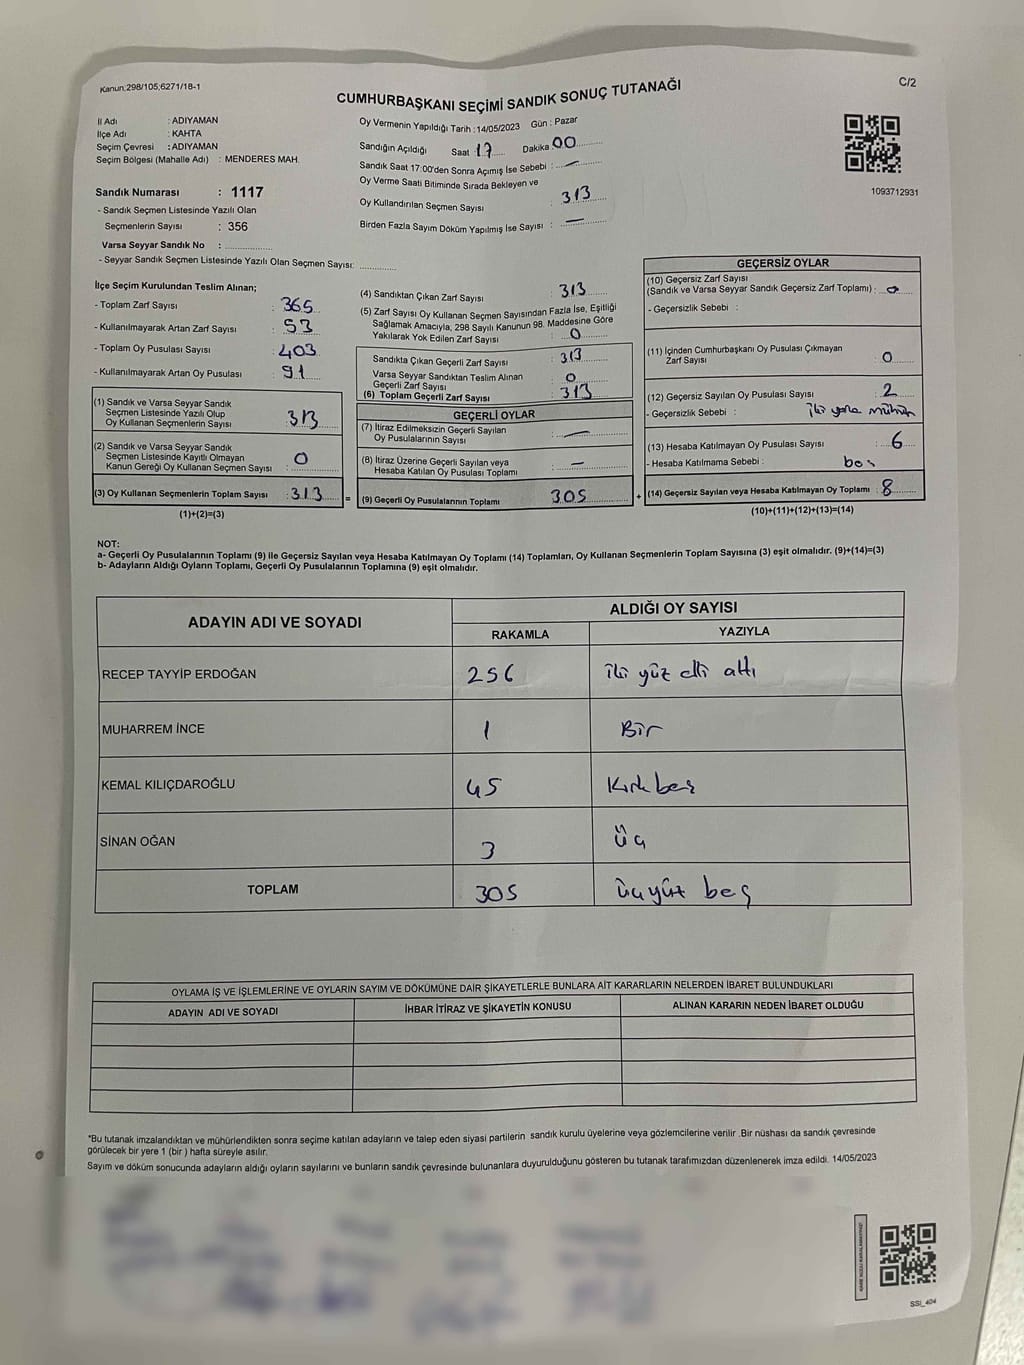 Kanun:298/105;6271/18-1
C/2
CUMHURBAŞKANI SEÇİMİ SANDIK SONUÇ TUTANAĞI
İl Adı : ADIYAMAN
İlçe Adı : KAHTA
Seçim Çevresi : ADIYAMAN
Seçim Bölgesi (Mahalle Adı) : MENDERES MAH.
Sandık Numarası : 1117
- Sandık Seçmen Listesinde Yazılı Olan
Seçmenlerin Sayısı : 356
Varsa Seyyar Sandık No :
- Seyyar Sandık Seçmen Listesinde Yazılı Olan Seçmen Sayısı:
Oy Vermenin Yapıldığı Tarih : 14/05/2023 Gün : Pazar
Sandığın Açıldığı Saat 17 Dakika 00
Sandık Saat 17:00'den Sonra Açımış İse Sebebi : —
Oy Verme Saati Bitiminde Sırada Bekleyen ve
Oy Kullandırılan Seçmen Sayısı : 313
Birden Fazla Sayım Döküm Yapılmış İse Sayısı : —
1093712931
İlçe Seçim Kurulundan Teslim Alınan;
- Toplam Zarf Sayısı : 365
- Kullanılmayarak Artan Zarf Sayısı : 53
- Toplam Oy Pusulası Sayısı : 403
- Kullanılmayarak Artan Oy Pusulası : 91
(1) Sandık ve Varsa Seyyar Sandık
Seçmen Listesinde Yazılı Olup
Oy Kullanan Seçmenlerin Sayısı : 313
(2) Sandık ve Varsa Seyyar Sandık
Seçmen Listesinde Kayıtlı Olmayan
Kanun Gereği Oy Kullanan Seçmen Sayısı : 0
(3) Oy Kullanan Seçmenlerin Toplam Sayısı : 313 =
(1)+(2)=(3)
(4) Sandıktan Çıkan Zarf Sayısı : 313
(5) Zarf Sayısı Oy Kullanan Seçmen Sayısından Fazla İse, Eşitliği
Sağlamak Amacıyla, 298 Sayılı Kanunun 98. Maddesine Göre
Yakılarak Yok Edilen Zarf Sayısı : 0
Sandıkta Çıkan Geçerli Zarf Sayısı : 313
Varsa Seyyar Sandıktan Teslim Alınan
Geçerli Zarf Sayısı : 0
(6) Toplam Geçerli Zarf Sayısı : 313
GEÇERLİ OYLAR
(7) İtiraz Edilmeksizin Geçerli Sayılan
Oy Pusulalarının Sayısı : —
(8) İtiraz Üzerine Geçerli Sayılan veya
Hesaba Katılan Oy Pusulası Toplamı : —
(9) Geçerli Oy Pusulalarının Toplamı 305 +
GEÇERSİZ OYLAR
(10) Geçersiz Zarf Sayısı
(Sandık ve Varsa Seyyar Sandık Geçersiz Zarf Toplamı) : 0
- Geçersizlik Sebebi :
(11) İçinden Cumhurbaşkanı Oy Pusulası Çıkmayan
Zarf Sayısı : 0
(12) Geçersiz Sayılan Oy Pusulası Sayısı : 2
- Geçersizlik Sebebi : iki yere mühür
(13) Hesaba Katılmayan Oy Pusulası Sayısı : 6
- Hesaba Katılmama Sebebi : boş
(14) Geçersiz Sayılan veya Hesaba Katılmayan Oy Toplamı : 8
(10)+(11)+(12)+(13)=(14)
NOT:
a- Geçerli Oy Pusulalarının Toplamı (9) ile Geçersiz Sayılan veya Hesaba Katılmayan Oy Toplamı (14) Toplamları, Oy Kullanan Seçmenlerin Toplam Sayısına (3) eşit olmalıdır. (9)+(14)=(3)
b- Adayların Aldığı Oyların Toplamı, Geçerli Oy Pusulalarının Toplamına (9) eşit olmalıdır.
ADAYIN ADI VE SOYADI
ALDIĞI OY SAYISI
RAKAMLA YAZIYLA
RECEP TAYYİP ERDOĞAN 256 iki yüz elli altı
MUHARREM İNCE 1 Bir
KEMAL KILIÇDAROĞLU 45 Kırk beş
SİNAN OĞAN 3 üç
TOPLAM 305 üçyüz beş
OYLAMA İŞ VE İŞLEMLERİNE VE OYLARIN SAYIM VE DÖKÜMÜNE DAİR ŞİKAYETLERLE BUNLARA AİT KARARLARIN NELERDEN İBARET BULUNDUKLARI
ADAYIN ADI VE SOYADI İHBAR İTİRAZ VE ŞİKAYETİN KONUSU ALINAN KARARIN NEDEN İBARET OLDUĞU
*Bu tutanak imzalandıktan ve mühürlendikten sonra seçime katılan adayların ve talep eden siyasi partilerin sandık kurulu üyelerine veya gözlemcilerine verilir .Bir nüshası da sandık çevresinde
görülecek bir yere 1 (bir ) hafta süreyle asılır.
Sayım ve döküm sonucunda adayların aldığı oyların sayılarını ve bunların sandık çevresinde bulunanlara duyurulduğunu gösteren bu tutanak tarafımızdan düzenlenerek imza edildi. 14/05/2023
SSI_404